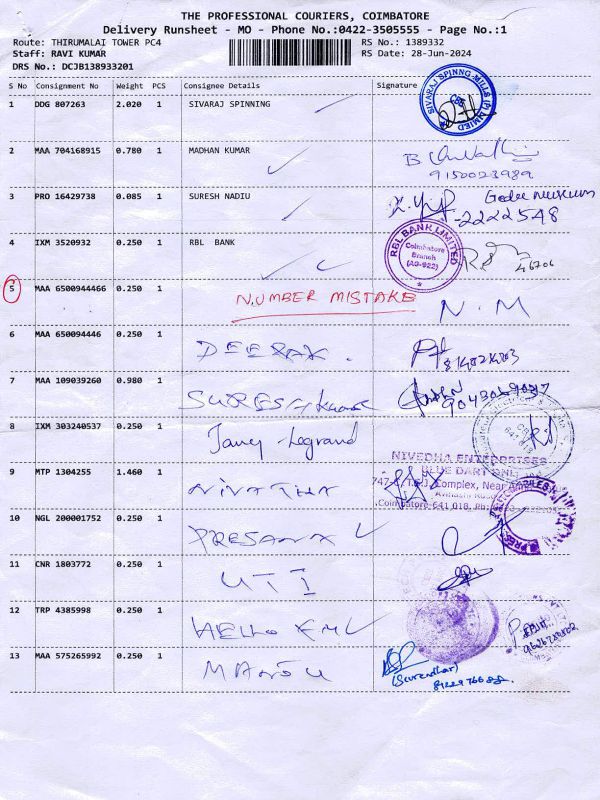 THE PROFESSIONAL COURIERS, COIMBATORE
Delivery Runsheet - MO - Phone No.:0422-3505555 - Page No.:1
Route: THIRUMALAI TOWER PC4 RS No.: 1389332
Staff: RAVI KUMAR RS Date: 28-Jun-2024
DRS No.: DCJB138933201
S No Consignment No Weight PCS Consignee Details Signature
1 DDG 807263 2.020 1 SIVARAJ SPINNING
SIVARAJ SPINNG MILLS (P) LIMITED
CBE
2 MAA 704168915 0.780 1 MADHAN KUMAR
9150023989
3 PRO 16429738 0.085 1 SURESH NADIU
-2222548
4 IXM 3520932 0.250 1 RBL BANK
RBL BANK LIMITED
Coimbatore
Branch
(AO-922)
46706
5 MAA 6500944466 0.250 1 NUMBER MISTAKE N.M
6 MAA 650094446 0.250 1 DEEPAK.
7 MAA 109039260 0.980 1 SURESH Kumar
9043069037
8 IXM 303240537 0.250 1 Janey-Legrand
NIVEDHA ENTERPRISES
BLUE DART
9 MTP 1304255 1.460 1 NIVATHA
Complex, Near
Coimbatore-641 018.
10 NGL 200001752 0.250 1 PRESANA
11 CNR 1803772 0.250 1 UTI
12 TRP 4385998 0.250 1 HELLO FM
13 MAA 575265992 0.250 1 MANOJ
(Surendhar)